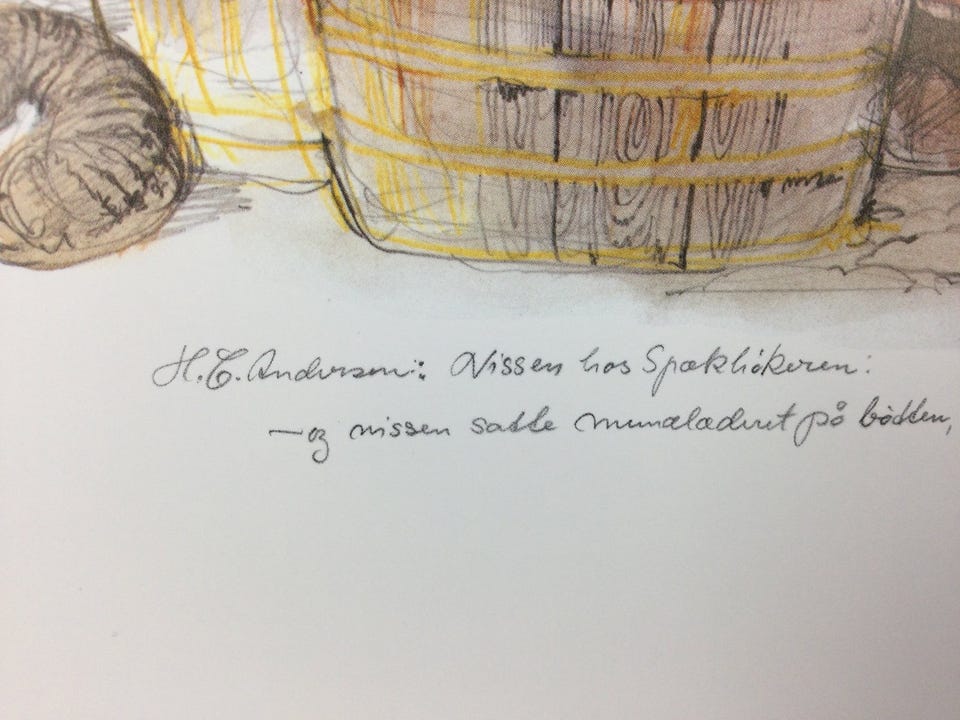 H.C. Andersen: Nissen hos Spækhökeren:
— og nissen satte mundlæderet på bötten,